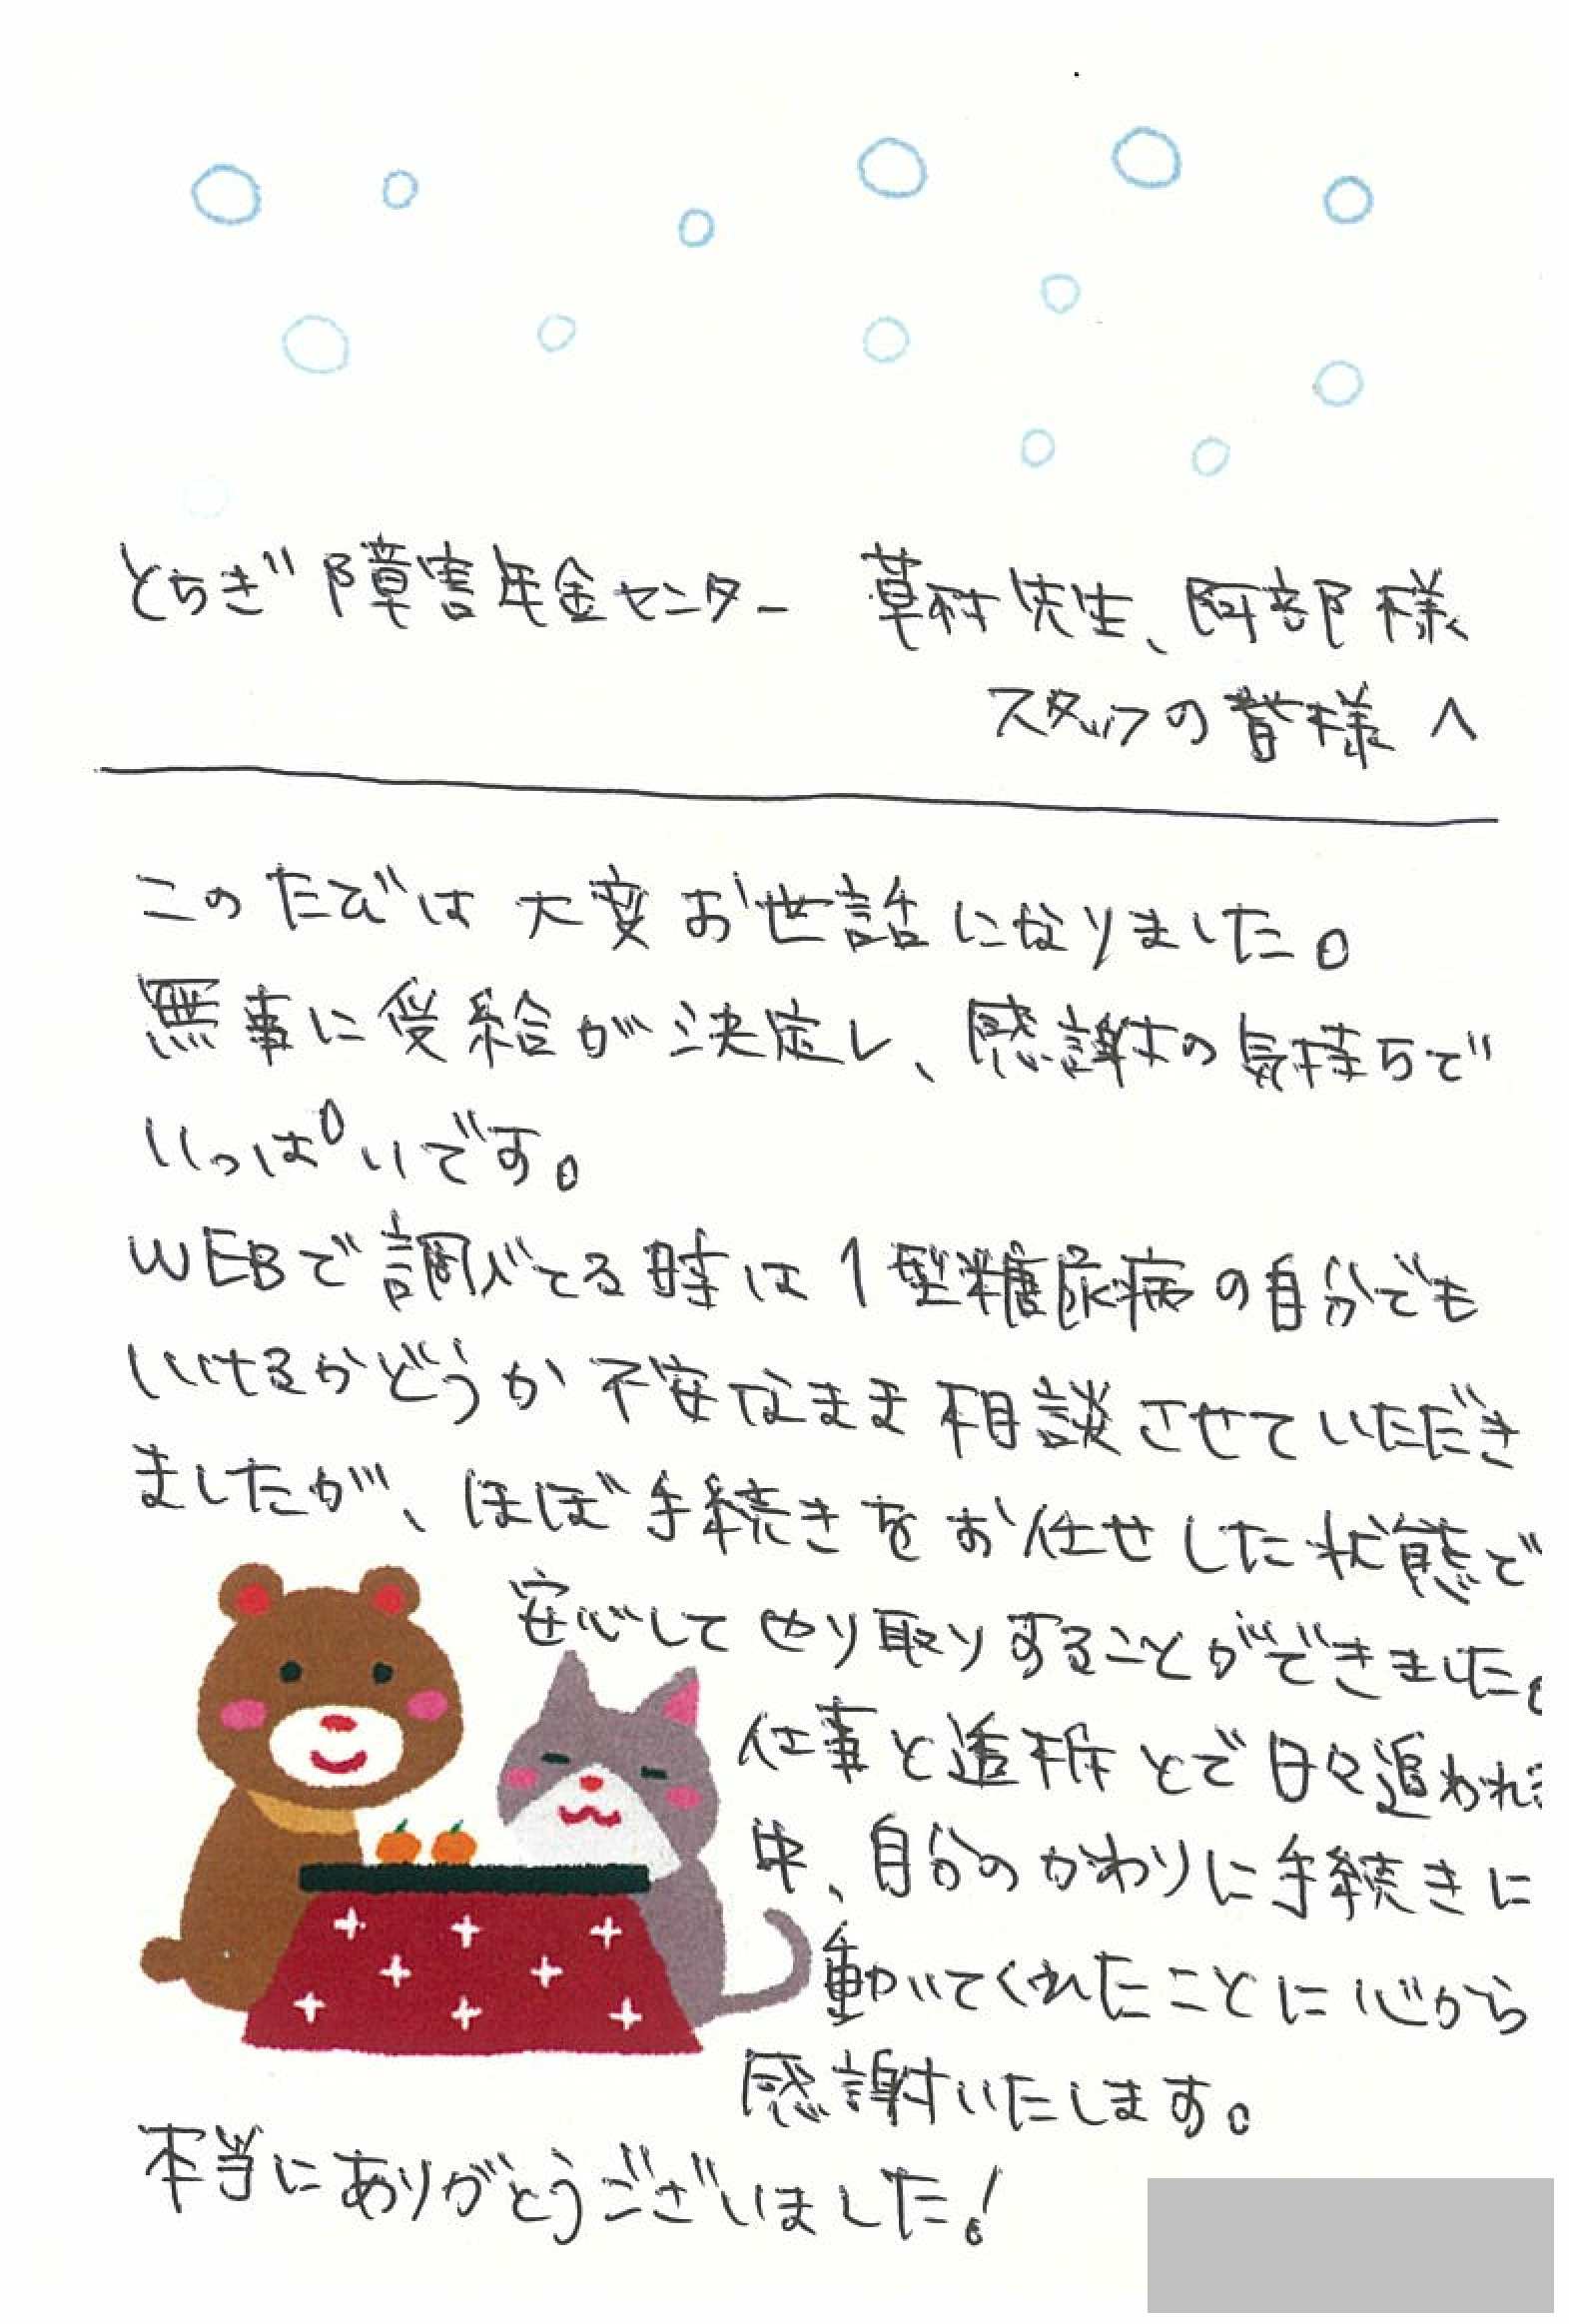 とちぎ障害年金センター 草村先生、阿部様
スタッフの皆様へ
このたびは大変お世話になりました。
無事に受給が決定し、感謝の気持ちで
いっぱいです。
WEBで調べてる時は1型糖尿病の自分でも
いけるかどうか不安なまま相談させていただき
ましたが、ほぼ手続きをお任せした状態で
安心してやり取りすることができました。
仕事と透析とで日々追われる
中、自分のかわりに手続きに
動いてくれたことに心から
感謝いたします。
本当にありがとうございました!